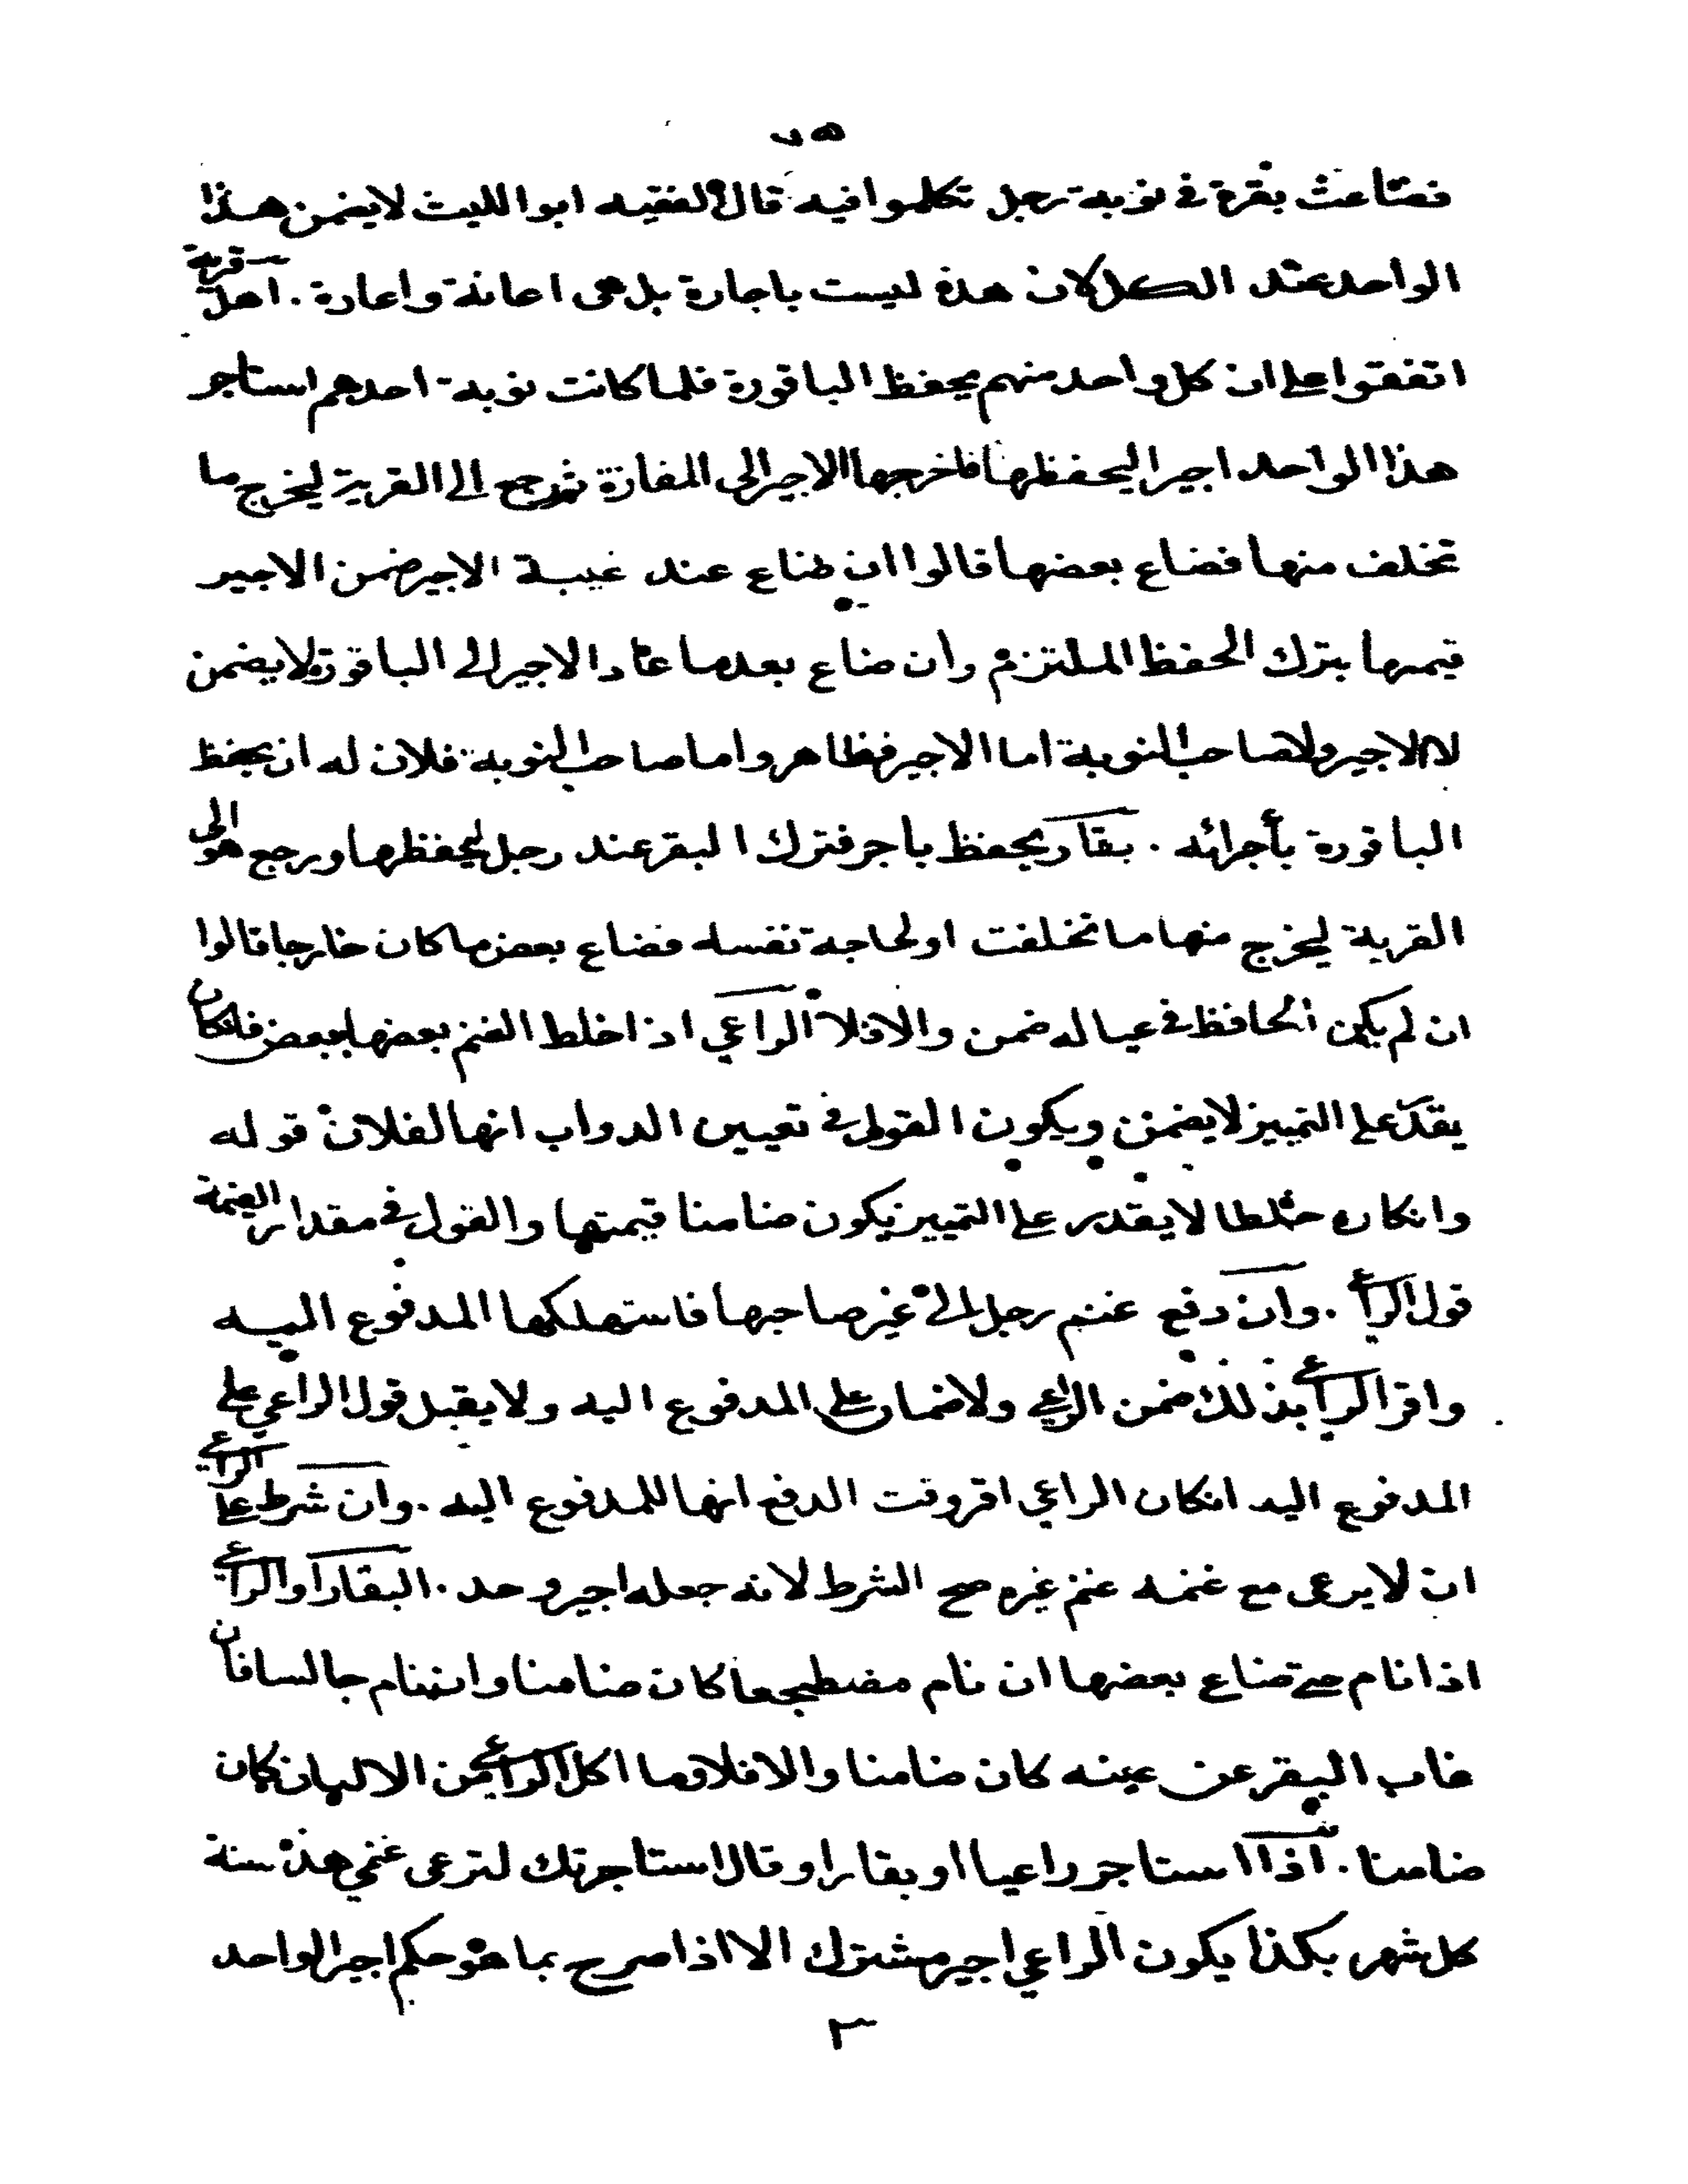 فضاعت بقرة في نوبة رجل تكلموا فيه قال الفقيه ابوا الليث لا يضمن هذا
الواحد عند الكل لان هذه ليست باجارة بل هى اعانة واعارة . اهل قرية
اتفقوا على ان كل واحد منهم يحفظ الباقورة فلما كانت نوبة احدهم استاجر
هذا الواحد اجيرا ليحفظها فاخرجها الاجير الى المفازة ثم رجع الى القرية ليخرج ما
تخلف منها فضاع بعضها قالوا ان ضاع عند غيبة الاجير ضمن الاجير
قيمها بترك الحفظ الملتزم وان ضاع بعدما عاد الاجير الى الباقورة لا يضمن
لا الاجير ولا صاحب النوبة اما الاجير فظاهر واما صاحب النوبة فلان له ان يحفظ
الباقورة بأجرائه . بقار يحفظ باجر فترك البقر عند رجل ليحفظها ورجع هو الى
القرية ليخرج منها ما تخلفت او لحاجة نفسه فضاع بعض ما كان خارجا قالوا
ان لم يكن الحافظ في عياله ضمن والا فلا الراعي اذا خلط الغنم بعضها ببعض فان كان
يقدر على التمييز لا يضمن ويكون القول في تعيين الدواب انها لفلان قوله
وان كان خلطا لا يقدر على التمييز يكون ضامنا قيمتها والقول في مقدار القيمة
قول الراعي . وان دفع غنم رجل الى غير صاحبها فاستهلكها المدفوع اليه
واقر الراعي بذلك ضمن الراعي ولا ضمان على المدفوع اليه ولا يقبل قول الراعي على
المدفوع اليه ان كان الراعي اقر وقت الدفع انها للمدفوع اليه . وان شرط على الراعي
ان لا يرعى مع غنمه غنم غيره صح الشرط لانه جعله اجير وحد . البقار او الراعي
اذا نام حتى ضاع بعضها ان نام مضطجعا كان ضامنا وان نام جالسا فان
غاب البقر عن عينه كان ضامنا والا فلا وما اكل الراعي من الالبان كان
ضامنا . اذا استاجر راعيا او بقارا وقال استاجرتك لترعى غنمي هذه سنة
كل شهر بكذا يكون الراعي اجير مشترك الا اذا صرح بما هو حكم اجير الواحد